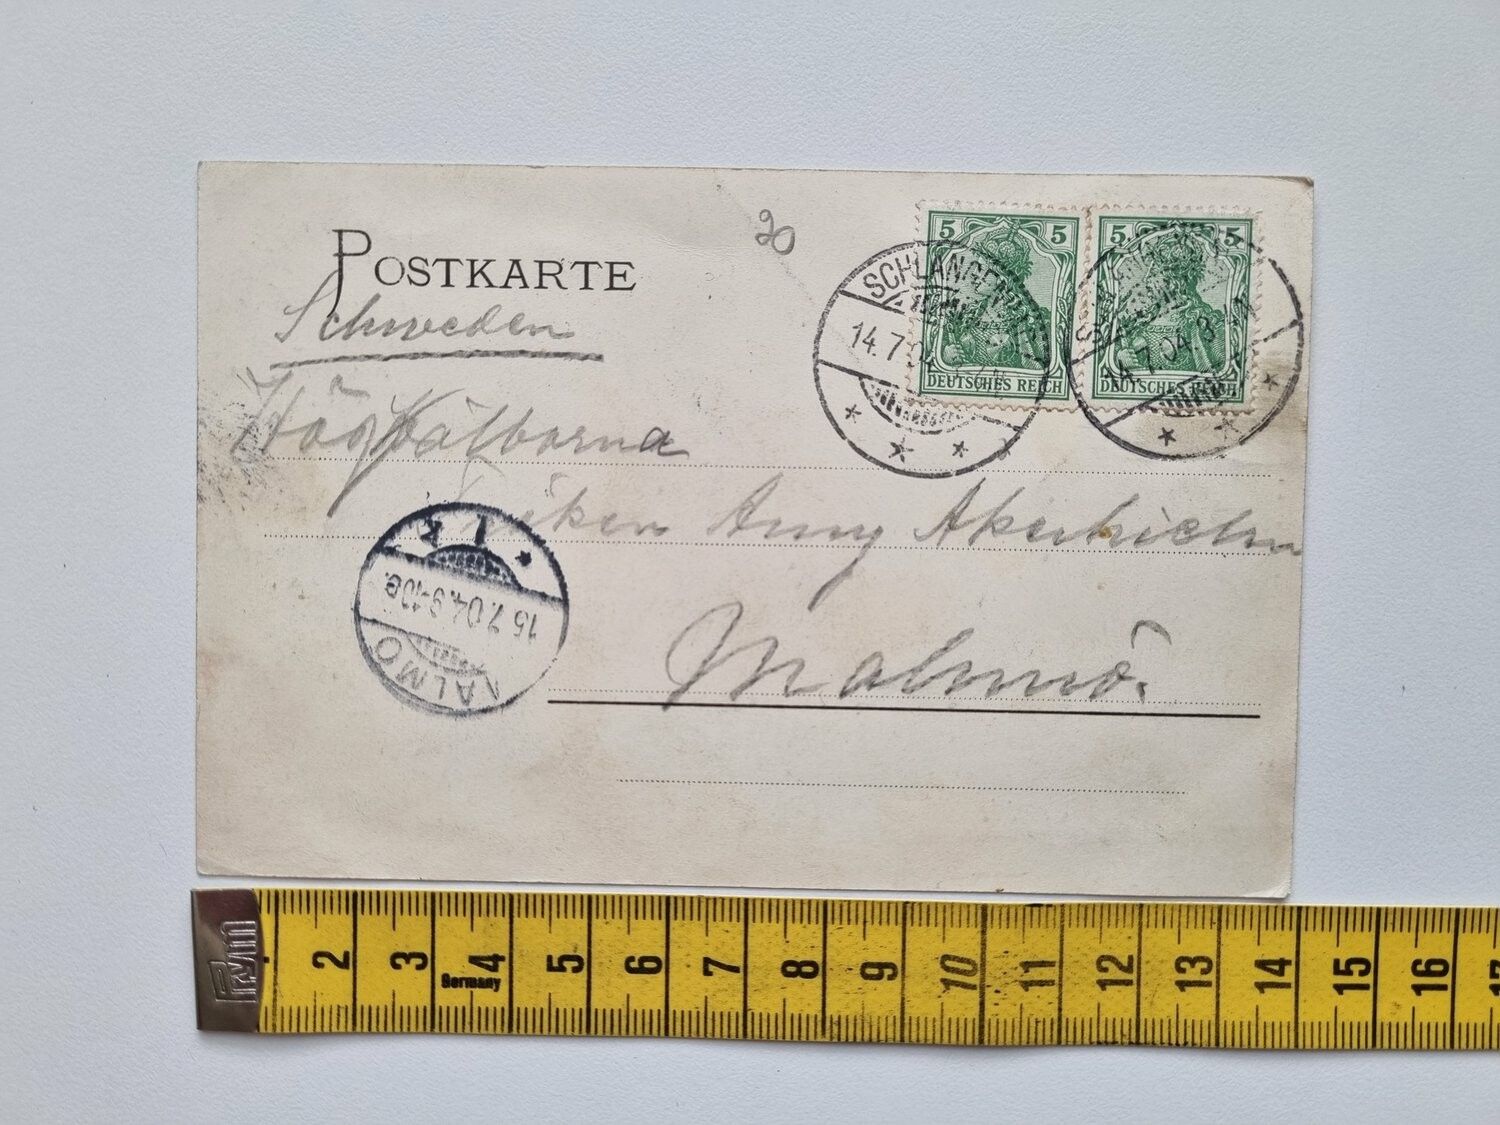 20
POSTKARTE
5 5
5 5
DEUTSCHES REICH
DEUTSCHES REICH
SCHLANGENBAD
14.7.04
14.7.04 3
Schweden
Högvälborna
Fröken Anny
MALMÖ
15.7.04.9-10e.
1 K
Malmö.
Prym
2 3 4 5 6 7 8 9 10 11 12 13 14 15 16 17
Germany